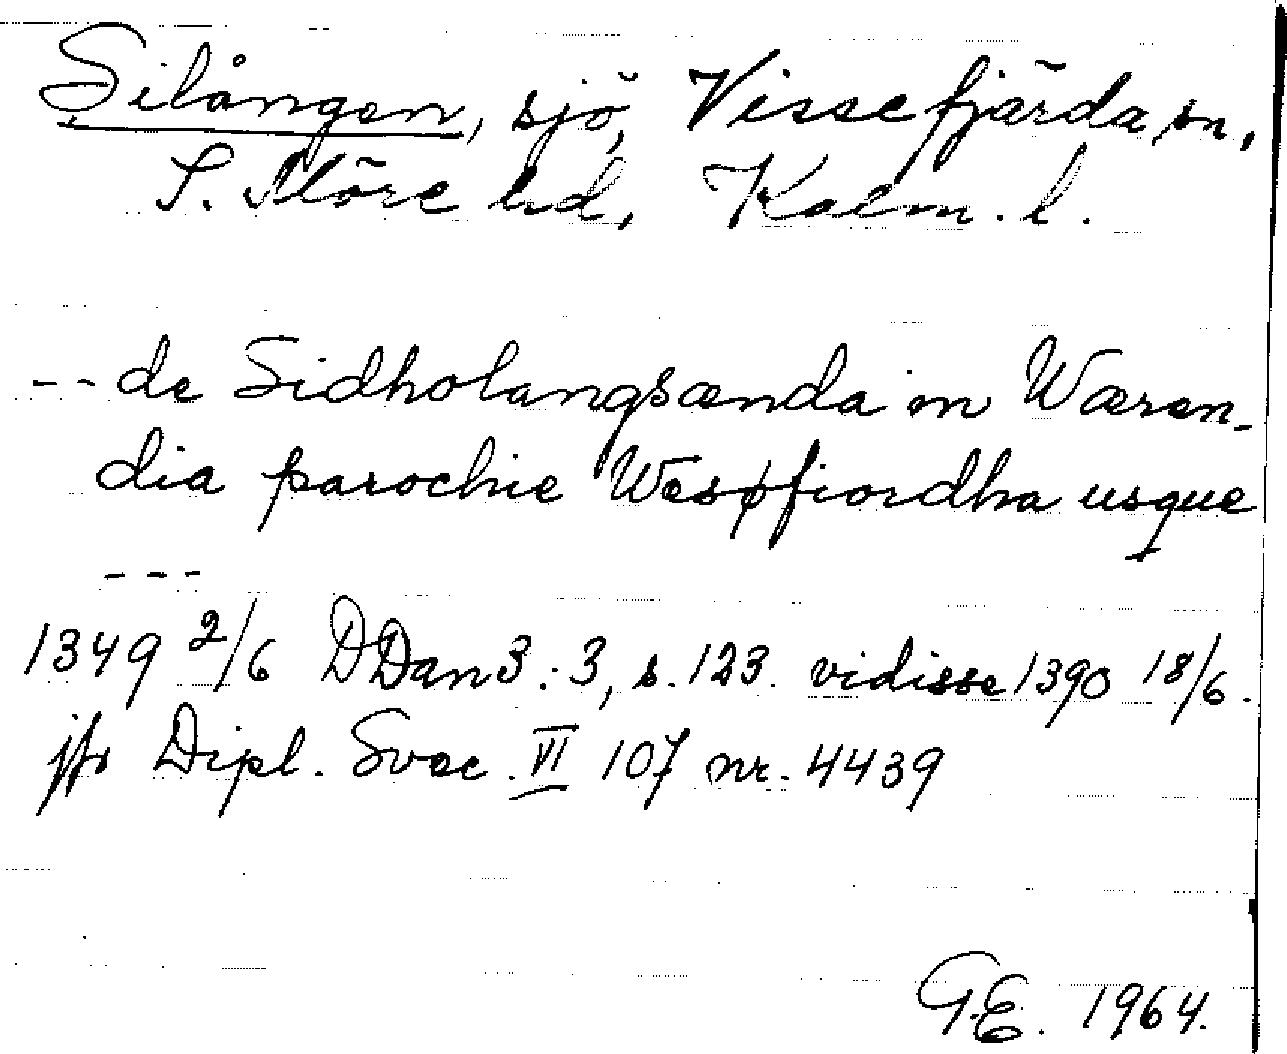 Silången, sjö, Vissefjärda sn,
S. Möre hd, Kalm. l.
-- de Sidholangsænda in Wæren-
dia parochie Wesøfiordha usque
---
1349 2/6 DDan 3:3, s. 123. vidisse 1390 18/6.
jfr Dipl. Svec. VI 107 nr. 4439
G.E. 1964.